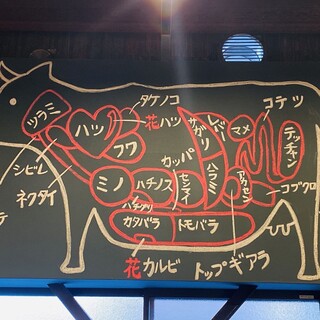 タケノコ
コテツ
ツラミ
ハツ
花ハツ
サガリ
レバー
マメ
テッチャン
フワ
シビレ
カッパ
ネクタイ
ミノ
ハチノス
センマイ
ハラミ
アカセン
コブクロ
ハチノリ
カタバラ
トモバラ
花カルビ
トップギアラ